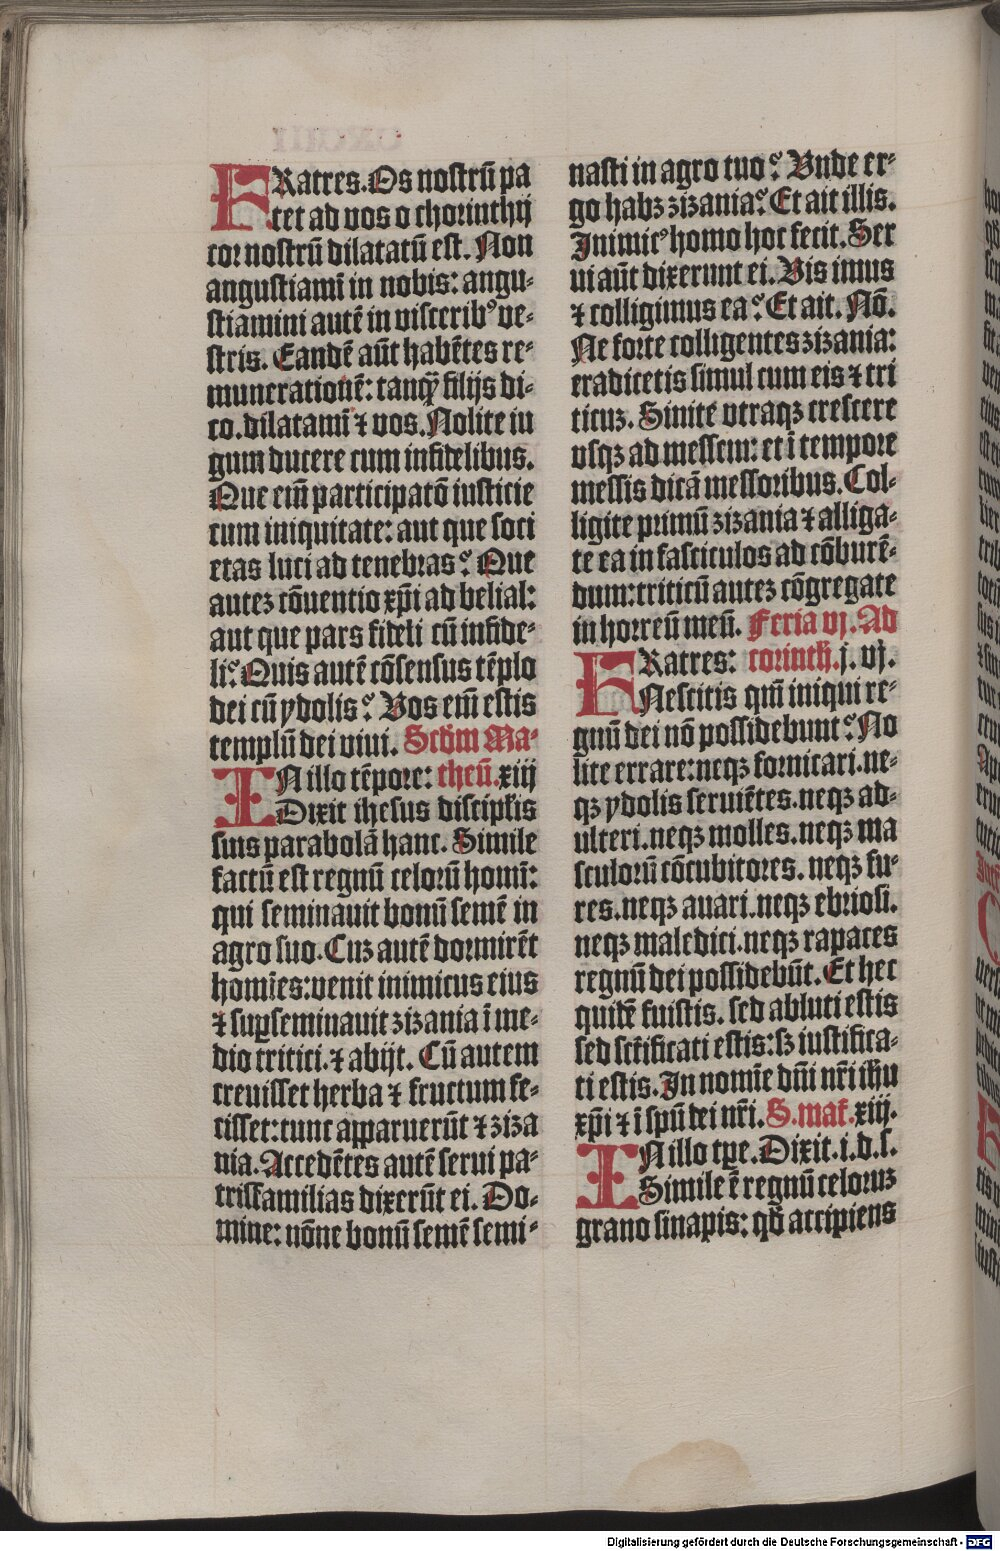 FRatres. Os nostrū pa
tet ad vos o chorinthij
cor nostrū dilatatū est. Non
angustiamī in nobis: angu-
stiamini autē in viscerib⁹ ve-
stris. Eandē aūt habētes re-
munerationē: tanqꝫ filijs di-
co. dilatamī ⁊ vos. Nolite iu
gum ducere cum infidelibus.
Que eīm participatō iusticie
cum iniquitate: aut que soci
etas luci ad tenebras? Que
autez cōuentio xp̄i ad belial:
aut que pars fideli cū infide-
li? Quis autē cōsensus tēplo
dei cū ydolis? Vos eīm estis
templū dei viui. Scdm Ma-
INillo tēpore: theū. xiij
Dixit ihesus discipłis
suis parabolā hanc. Simile
factū est regnū celorū homī:
qui seminauit bonū semē in
agro suo. Cuz autē dormirēt
homīes: venit inimicus eius
⁊ suꝑseminauit zizania ī me-
dio tritici. ⁊ abijt. Cū autem
creuisset herba ⁊ fructum fe-
cisset: tunc apparuerūt ⁊ ziza
nia. Accedētes autē serui pa-
trisfamilias dixerūt ei. Do-
mine: nōne bonū semē semi-
nasti in agro tuo? Vnde er-
go habꝫ zizania? Et ait illis.
Inimic⁹ homo hoc fecit. Ser
ui aūt dixerunt ei. Vis imus
⁊ colligimus ea? Et ait. Nō.
Ne forte colligentes zizania:
eradicetis simul cum eis ⁊ tri
ticuz. Sinite vtraqꝫ crescere
vsqꝫ ad messem: et ī tempore
messis dicā messoribus. Col-
ligite primū zizania ⁊ alliga-
te ea in fasciculos ad cōburē-
dum: triticū autez cōgregate
in horreū meū. Feria vj. Ad
FRatres: corinth. j. vj.
Nescitis qm̄ iniqui re-
gnū dei nō possidebunt? No
lite errare: neqꝫ fornicari. ne-
qꝫ ydolis seruiētes. neqꝫ ad-
ulteri. neqꝫ molles. neqꝫ ma
sculorū cōcubitores. neqꝫ fu-
res. neqꝫ auari. neqꝫ ebriosi.
neqꝫ maledici. neqꝫ rapaces
regnū dei possidebūt. Et hec
quidē fuistis. sed abluti estis
sed sc̄ificati estis: sꝫ iustifica-
ti estis. In nomīe dn̄i nr̄i ihū
xp̄i ⁊ ī spū dei nr̄i. S. mat. xiij.
INillo tp̄e. Dixit. i. d. s.
Simile ē regnū celoruz
grano sinapis: qđ accipiens
Digitalisierung gefördert durch die Deutsche Forschungsgemeinschaft - DFG